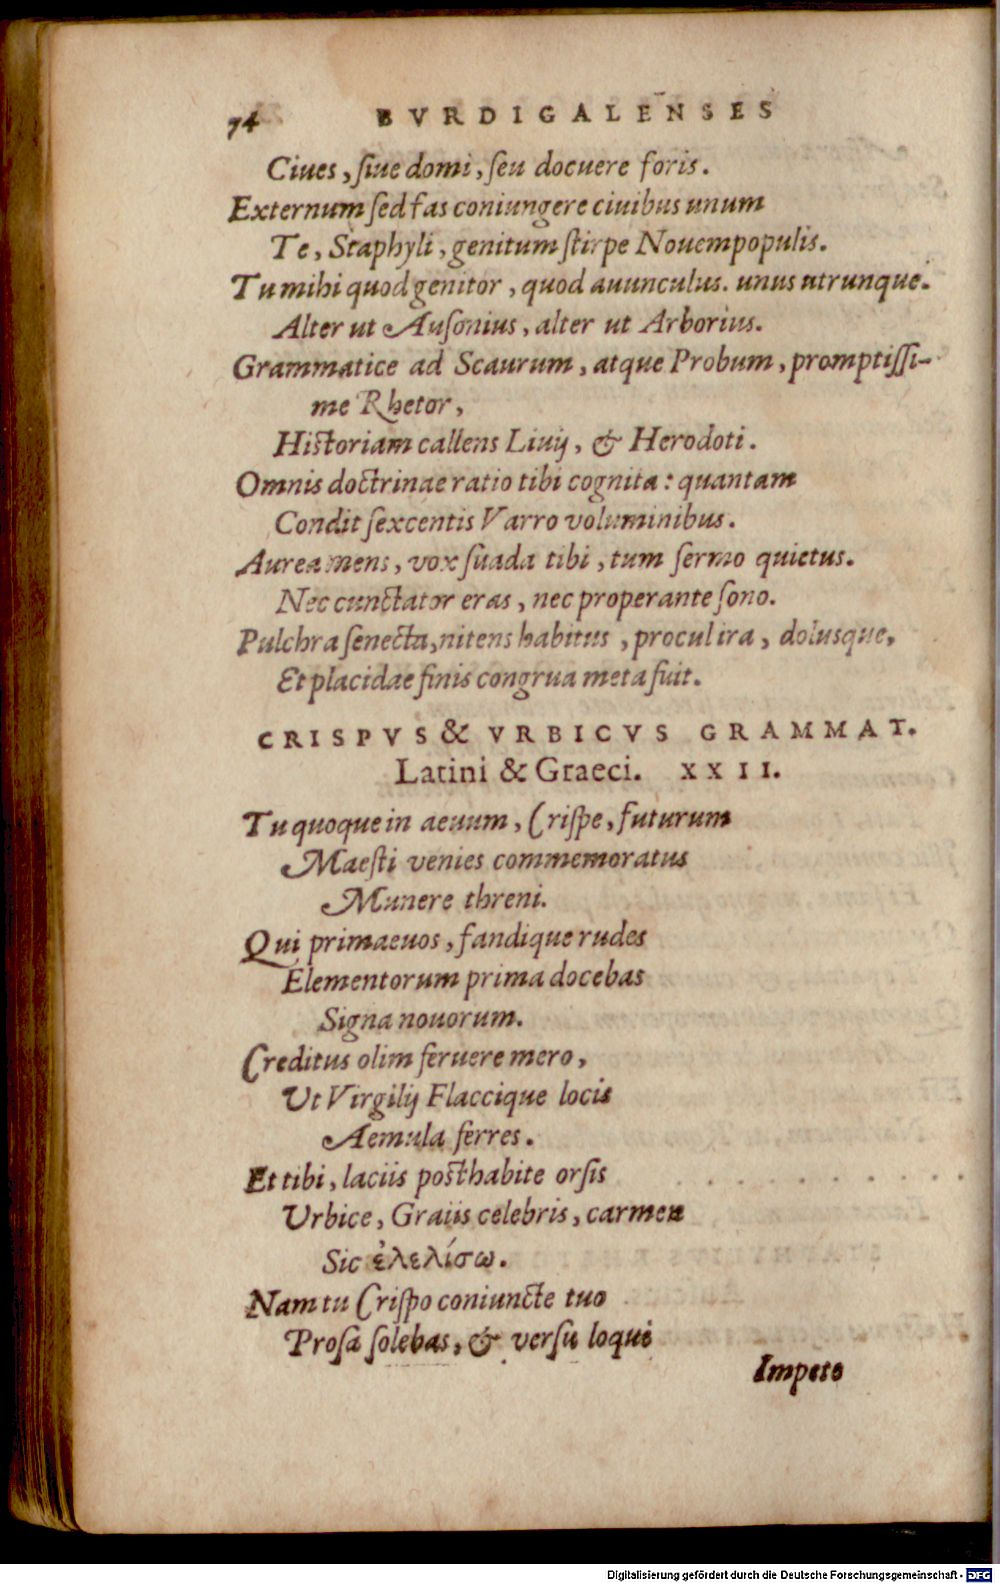 74 BVRDIGALENSES
Ciues, ſiue domi, ſeu docuere foris.
Externum ſed fas coniungere ciuibus unum
Te, Staphyli, genitum ſtirpe Nouempopulis.
Tu mihi quod genitor, quod auunculus. unus utrunque.
Alter ut Auſonius, alter ut Arborius.
Grammatice ad Scaurum, atque Probum, promptiſſi-
me Rhetor,
Hiſtoriam callens Liuij, & Herodoti.
Omnis doctrinae ratio tibi cognita: quantam
Condit ſexcentis Varro voluminibus.
Aurea mens, vox ſuada tibi, tum ſermo quietus.
Nec cunctator eras, nec properante ſono.
Pulchra ſenecta, nitens habitus, procul ira, dolusque,
Et placidae finis congrua meta fuit.
CRISPVS & VRBICVS GRAMMAT.
Latini & Graeci. XXII.
Tu quoque in aeuum, Criſpe, futurum
Maeſti venies commemoratus
Munere threni.
Qui primaeuos, fandique rudes
Elementorum prima docebas
Signa nouorum.
Creditus olim feruere mero,
Ut Virgilij Flaccique locis
Aemula ferres.
Et tibi, laciis poſthabite orſis
Urbice, Graiis celebris, carmen
Sic ἐλελίσω.
Nam tu Criſpo coniuncte tuo
Proſa ſolebas, & verſu loqui
Impete
Digitalisierung gefördert durch die Deutsche Forschungsgemeinschaft - DFG